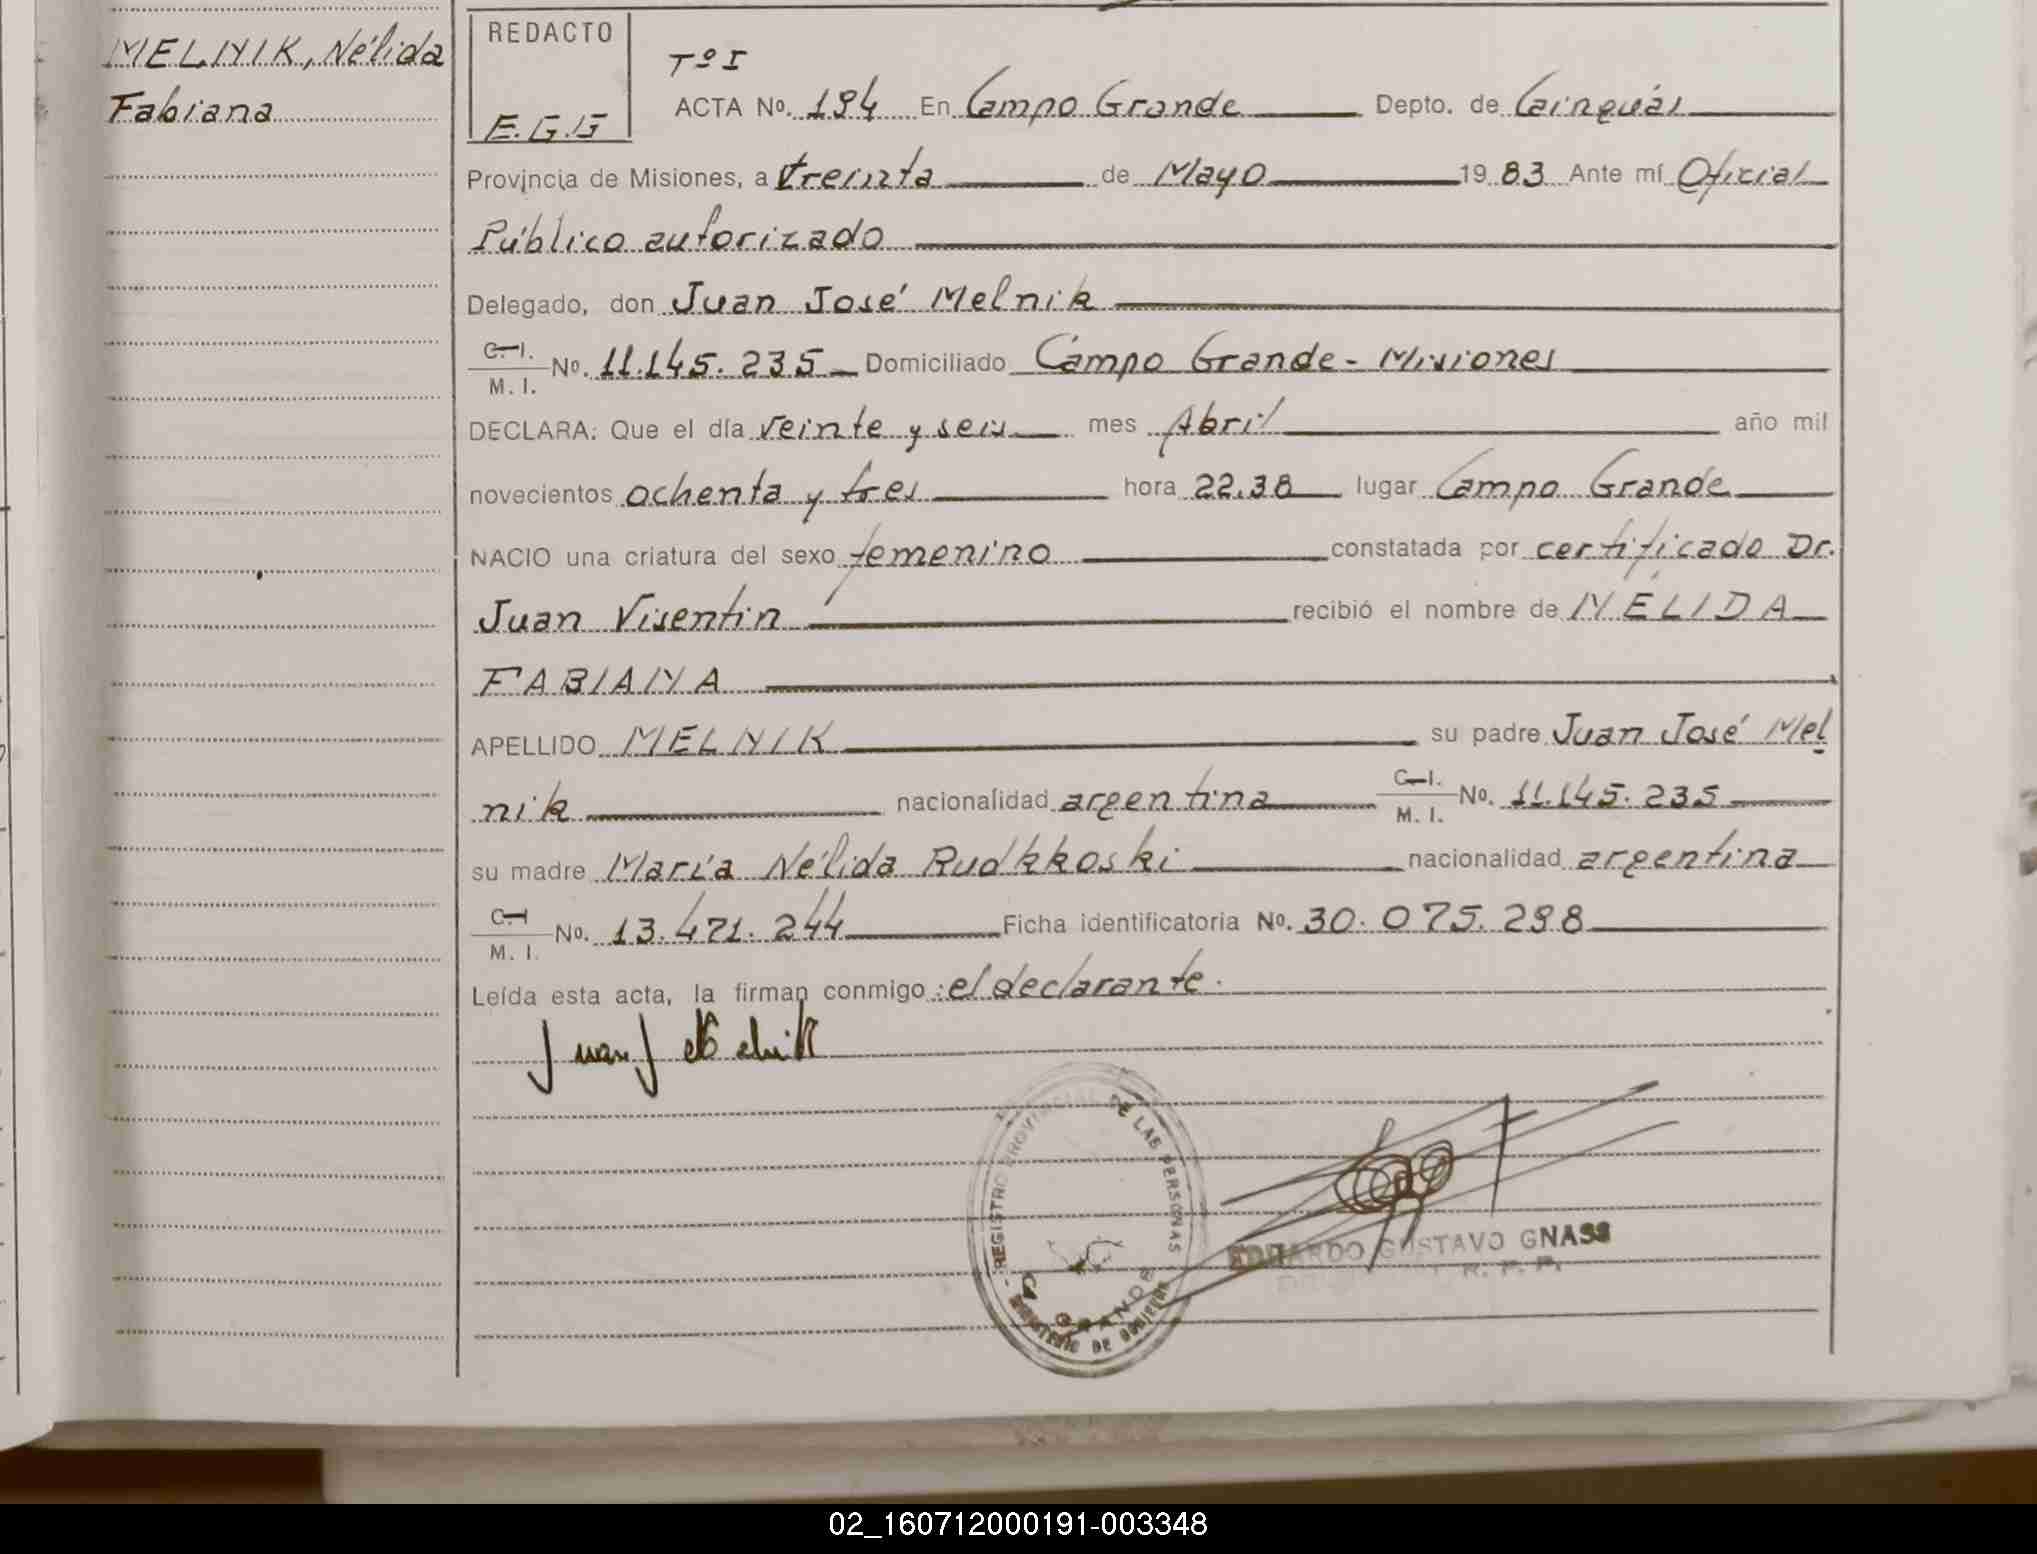 MELNIK, Nélida
Fabiana
REDACTO
E.G.G
Tº I
ACTA No. 194 En Campo Grande Depto. de Cainguás
Provincia de Misiones, a treinta de Mayo 19 83 Ante mí Oficial
Público autorizado
Delegado, don Juan José Melnik
C.I. M. I. No. 11.145.235 Domiciliado Campo Grande - Misiones
DECLARA: Que el día veinte y seis mes Abril año mil
novecientos ochenta y tres hora 22,38 lugar Campo Grande
NACIO una criatura del sexo femenino constatada por certificado Dr.
Juan Visentin recibió el nombre de NÉLIDA
FABIANA
APELLIDO MELNIK su padre Juan José Mel
nik nacionalidad argentina C.I. M. I. No. 11.145.235
su madre María Nélida Rudkkoski nacionalidad argentina
C.I M. I. No. 13.471.244 Ficha identificatoria No. 30.075.298
Leída esta acta, la firman conmigo : el declarante.
Juan J Melnik
REGISTRO PROVINCIAL DE LAS PERSONAS
C. GRANDE
MINISTERIO DE GOBIERNO
EDUARDO GUSTAVO GNASS
R. P. P.
02_160712000191-003348